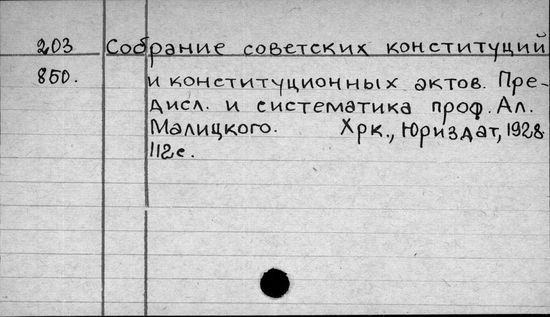 203 Собрание советских конституций
850. и конституционных актов. Пре-
дисл. и систематика проф. Ал.
Малицкого. Хрк., Юриздат, 1928
112с.